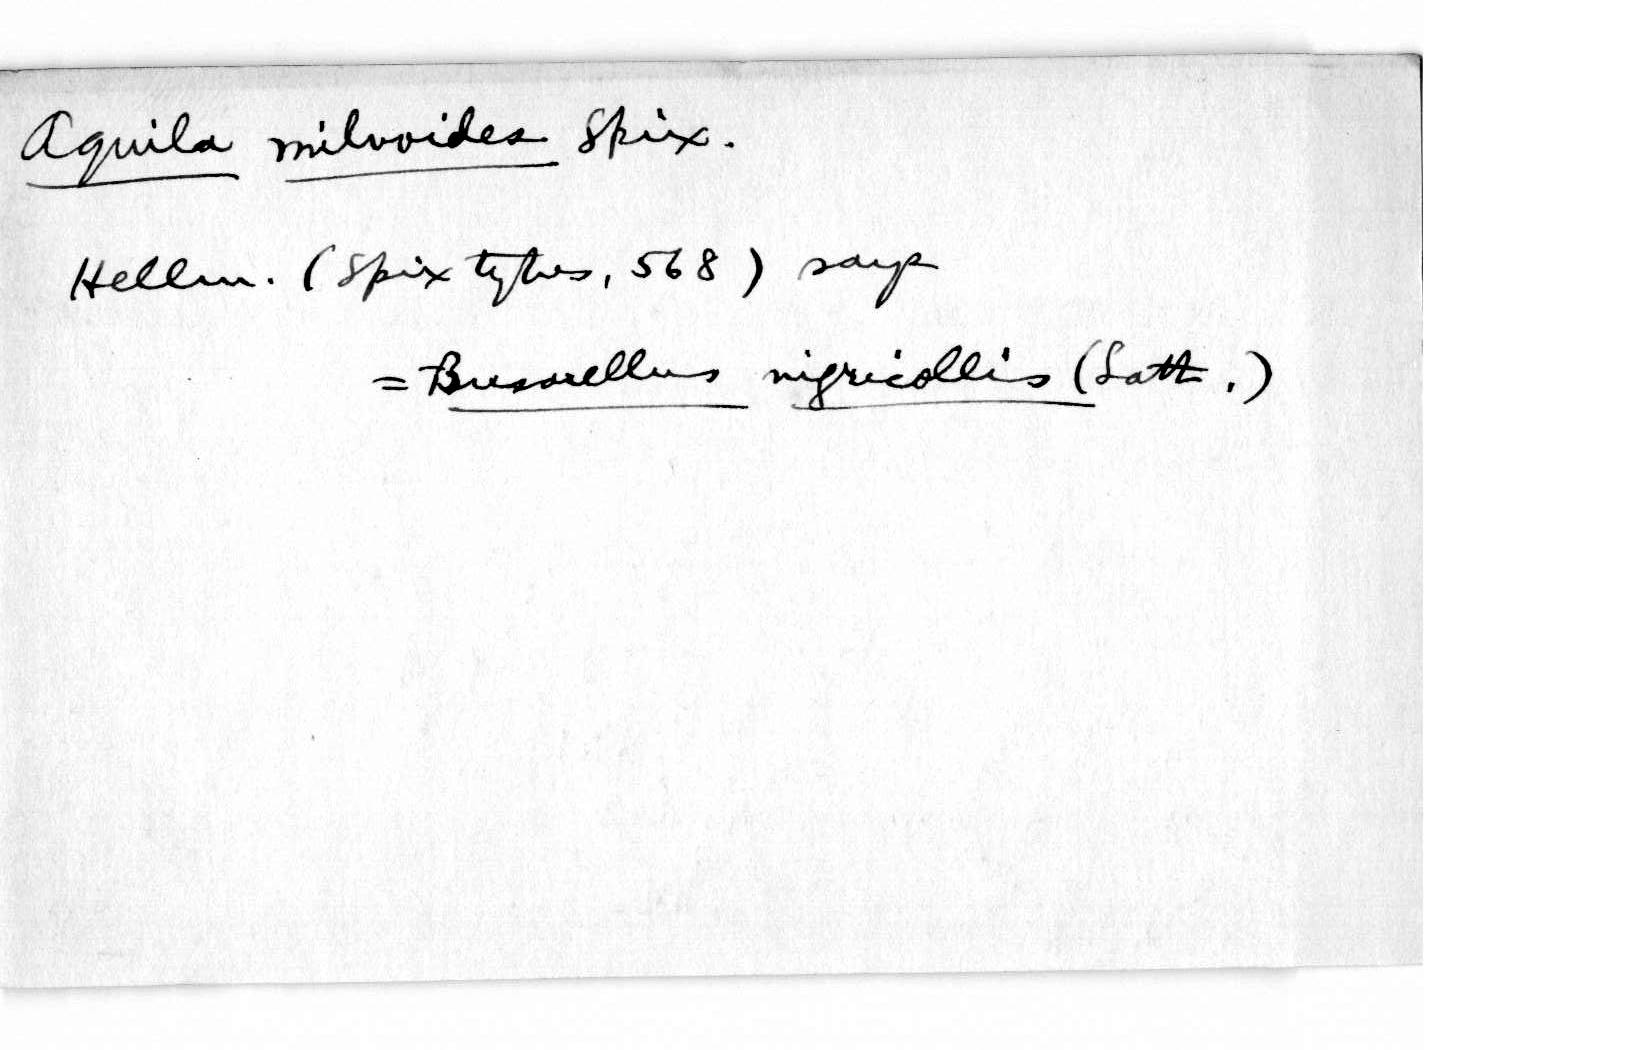 Aquila milvoides Spix.
Hellm. (Spix types, 568) says
= Busarellus nigricollis (Lath.)